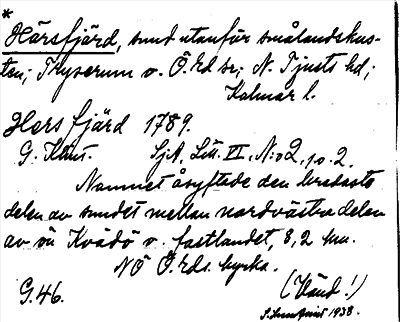 *
Härsfjärd, sund utanför smålandskus-
ten; Tryserum o. Ö. Ed sr; N. Tjusts hd;
Kalmar l.
Hers fjärd 1789.
G. Klint. SjA. Litt. VI, N:o 2, s. 2.
Namnet åsyftade den bredaste
delen av sundet mellan nordvästra delen
av ön Kvädö o. fastlandet, 8,2 km.
NÖ Ö. Eds kyrka.
G. 46. (Vänd!)
1938.